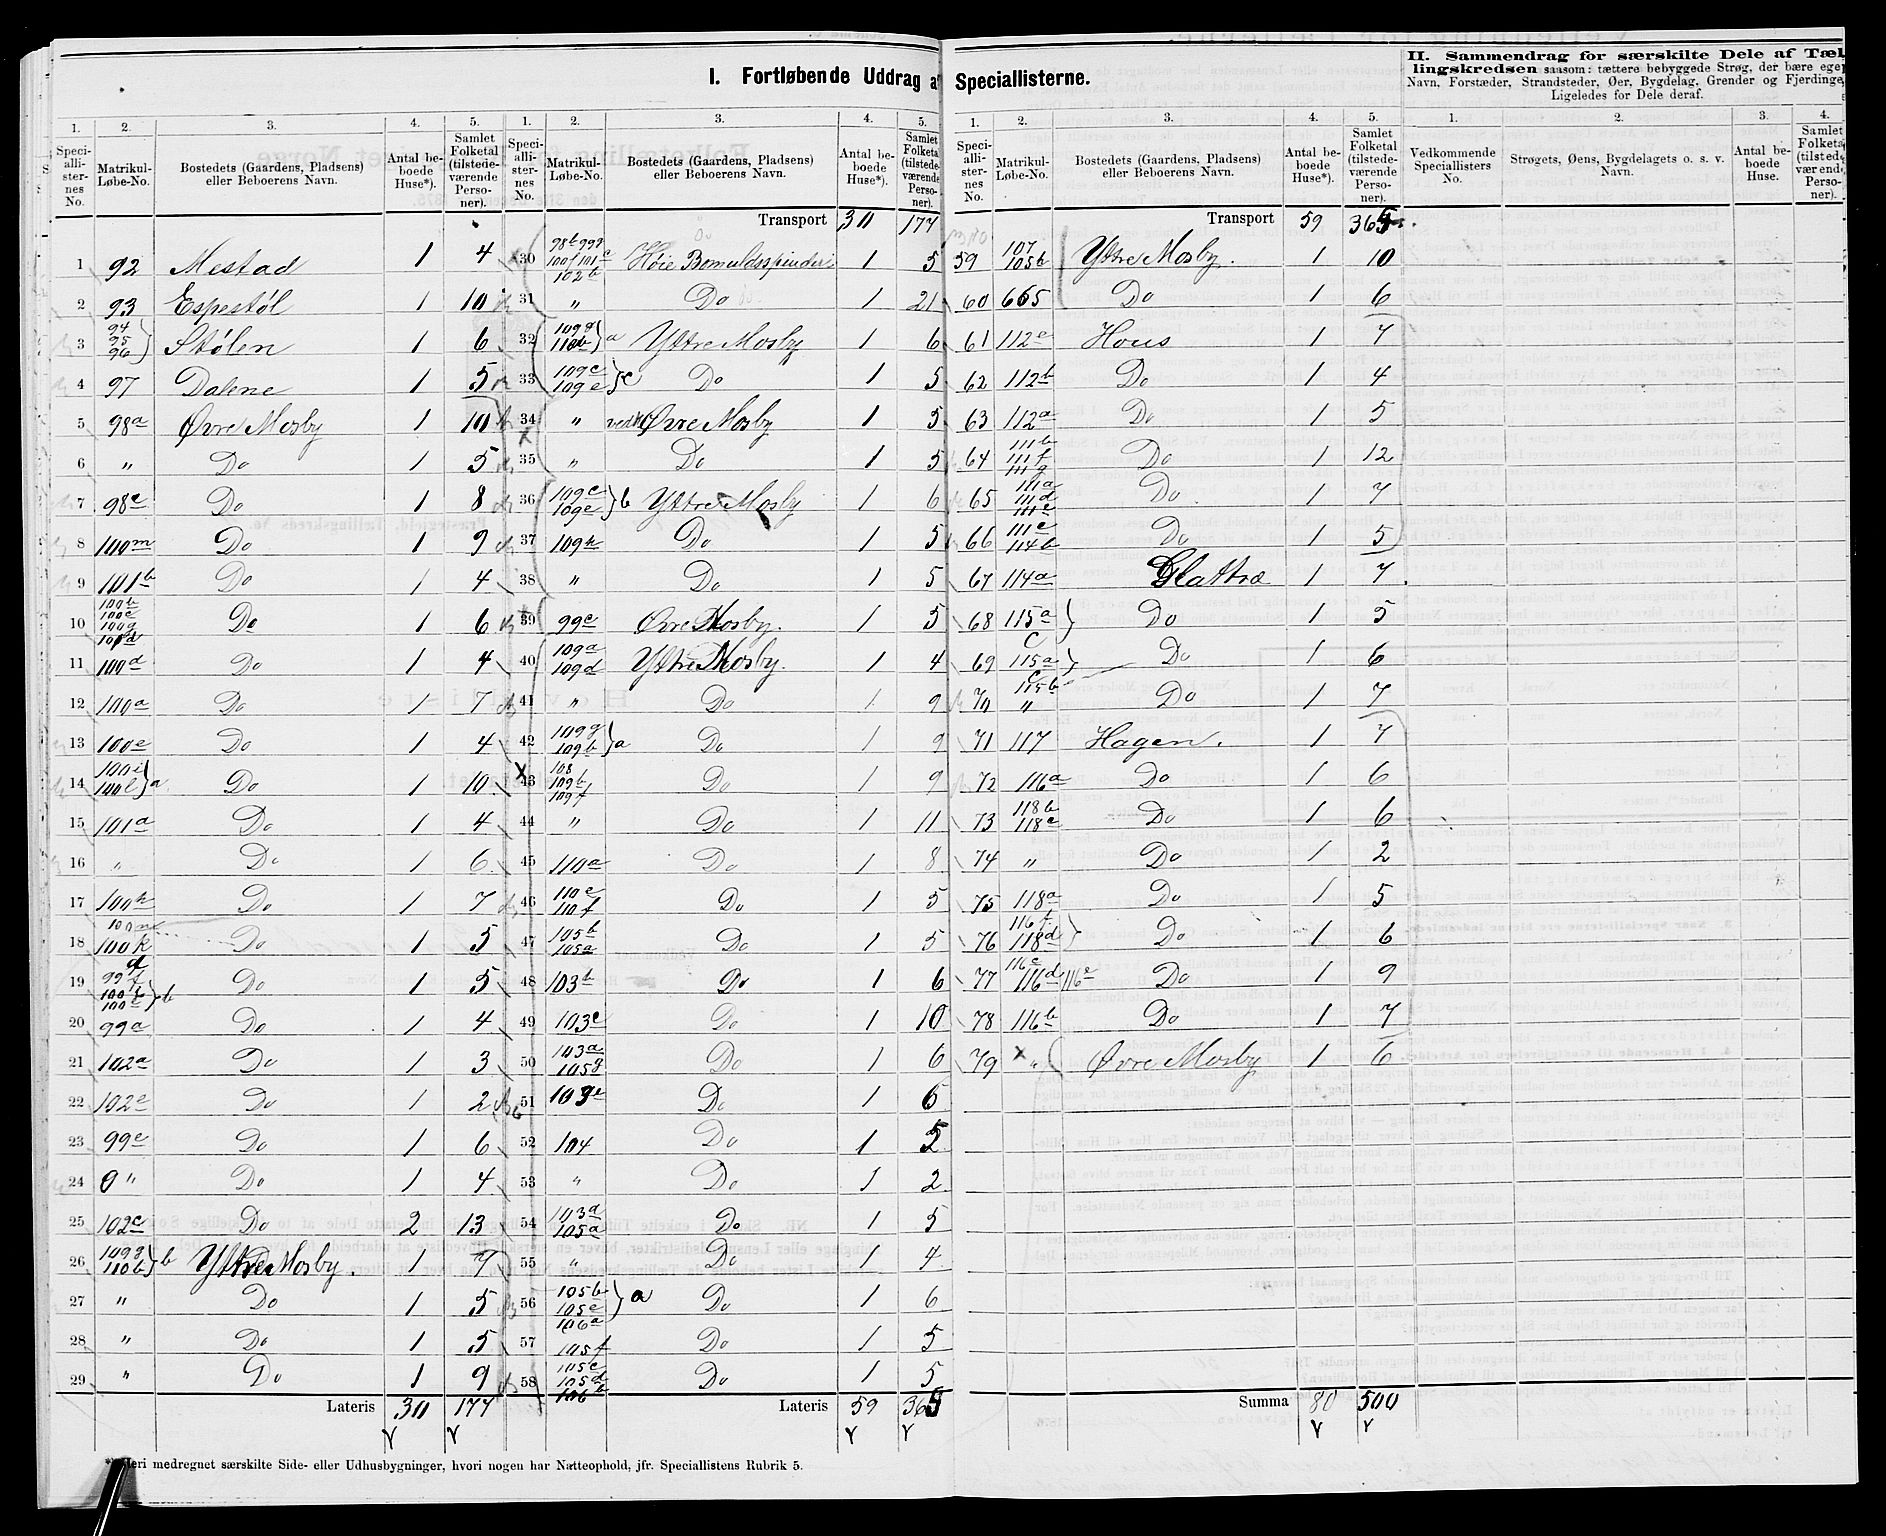 I. Fortløbende Uddrag af Speciallisterne.
II. Sammendrag for særskilte Dele af Tæl-
lingskredsen saasom: tættere bebyggede Strøg, der bære eget
Navn, Forstæder, Strandsteder, Øer, Bygdelag, Grender og Fjerdinge.
Ligeledes for Dele deraf.
1. 2. 3. 4. 5.
Speciallisternes No. Matrikul-Løbe-No. Bostedets (Gaardens, Pladsens) eller Beboerens Navn. Antal beboede Huse*). Samlet Folketal (tilstedeværende Personer).
1 92 Mestad 1 4
2 93 Espestøl 1 10
3 94 95 96 } Stølen 1 6
4 97 Dalene 1 5
5 98a Øvre Mosby 1 10
6 " Do 1 5
7 98c Do 1 8
8 100m Do 1 9
9 101b Do 1 4
10 100b 100c 100g 101d Do 1 6
11 100d Do 1 4
12 100a Do 1 7
13 100e Do 1 4
14 100i 100l } a Do 1 10
15 101a Do 1 4
16 " Do 1 6
17 100h Do 1 7
18 100n 100k Do 1 5
19 99f 100b 100c } b Do 1 5
20 99a Do 1 4
21 102a Do 1 3
22 102e Do 1 2
23 99e Do 1 6
24 " Do 1 4
25 102c Do 2 13
26 109g 110b } b Yttre Mosby. 1 7
27 " Do 1 5
28 " Do 1 5
29 " Do 1 9
Lateris 30 177
1. 2. 3. 4. 5.
Speciallisternes No. Matrikul-Løbe-No. Bostedets (Gaardens, Pladsens) eller Beboerens Navn. Antal beboede Huse*). Samlet Folketal (tilstedeværende Personer).
Transport 30 177
30 98b 99g 100f 101c 102b Høie Bomuldsspinderi 1 5
31 " Do 1 21
32 109g 110b } a Yttre Mosby 1 6
33 109c 109e } c Do 1 5
34 " Øvre Mosby 1 5
35 " Do 1 5
36 109c 109e } b Yttre Mosby 1 6
37 109h Do 1 5
38 " Do 1 5
39 99c Øvre Mosby. 1 5
40 109a 109d Yttre Mosby. 1 4
41 " Do 1 9
42 109g 109b } a Do 1 9
43 108 109b 109f Do 1 9
44 " Do 1 11
45 110a Do 1 8
46 110e 110f Do 1 5
47 105b 105a Do 1 5
48 103b Do 1 6
49 103c Do 1 10
50 103a 105g Do 1 6
51 103e Do 1 6
52 104 Do 1 5
53 " Do 1 2
54 103d 105a Do 1 5
55 " Do 1 4
56 105b 105e } a Do 1 6
57 106a 105f Do 1 5
58 105c 105d 106b Do 1 5
Lateris 59 365
1. 2. 3. 4. 5.
Speciallisternes No. Matrikul-Løbe-No. Bostedets (Gaardens, Pladsens) eller Beboerens Navn. Antal beboede Huse*). Samlet Folketal (tilstedeværende Personer).
Transport 59 365
59 107 105b Yttre Mosby. 1 10
60 665 Do 1 6
61 112c Hous 1 7
62 112b Do 1 4
63 112a Do 1 5
64 111b 111f 111g Do 1 12
65 111a 111d 111c Do 1 7
66 111e 114b Do 1 5
67 114a Glattræ 1 7
68 115a } Do 1 5
69 115a } Do 1 6
70 115b " Do 1 7
71 117 Hagen. 1 7
72 116a Do 1 6
73 118b 118c Do 1 6
74 " Do 1 2
75 118a Do 1 5
76 116f 118d } Do 1 6
77 116c 116d 116e Do 1 9
78 116b Do 1 7
79 x " Øvre Mosby 1 6
Summa 80 500
1. 2. 3. 4.
Vedkommende Speciallisters No. Strøgets, Øens, Bygdelagets o. s. v. Navn. Antal beboede Huse. Samlet Folketal (tilstedeværende Personer).
*) Heri medregnet særskilte Side- eller Udhusbygninger, hvori nogen har Natteophold, jfr. Speciallistens Rubrik 5.